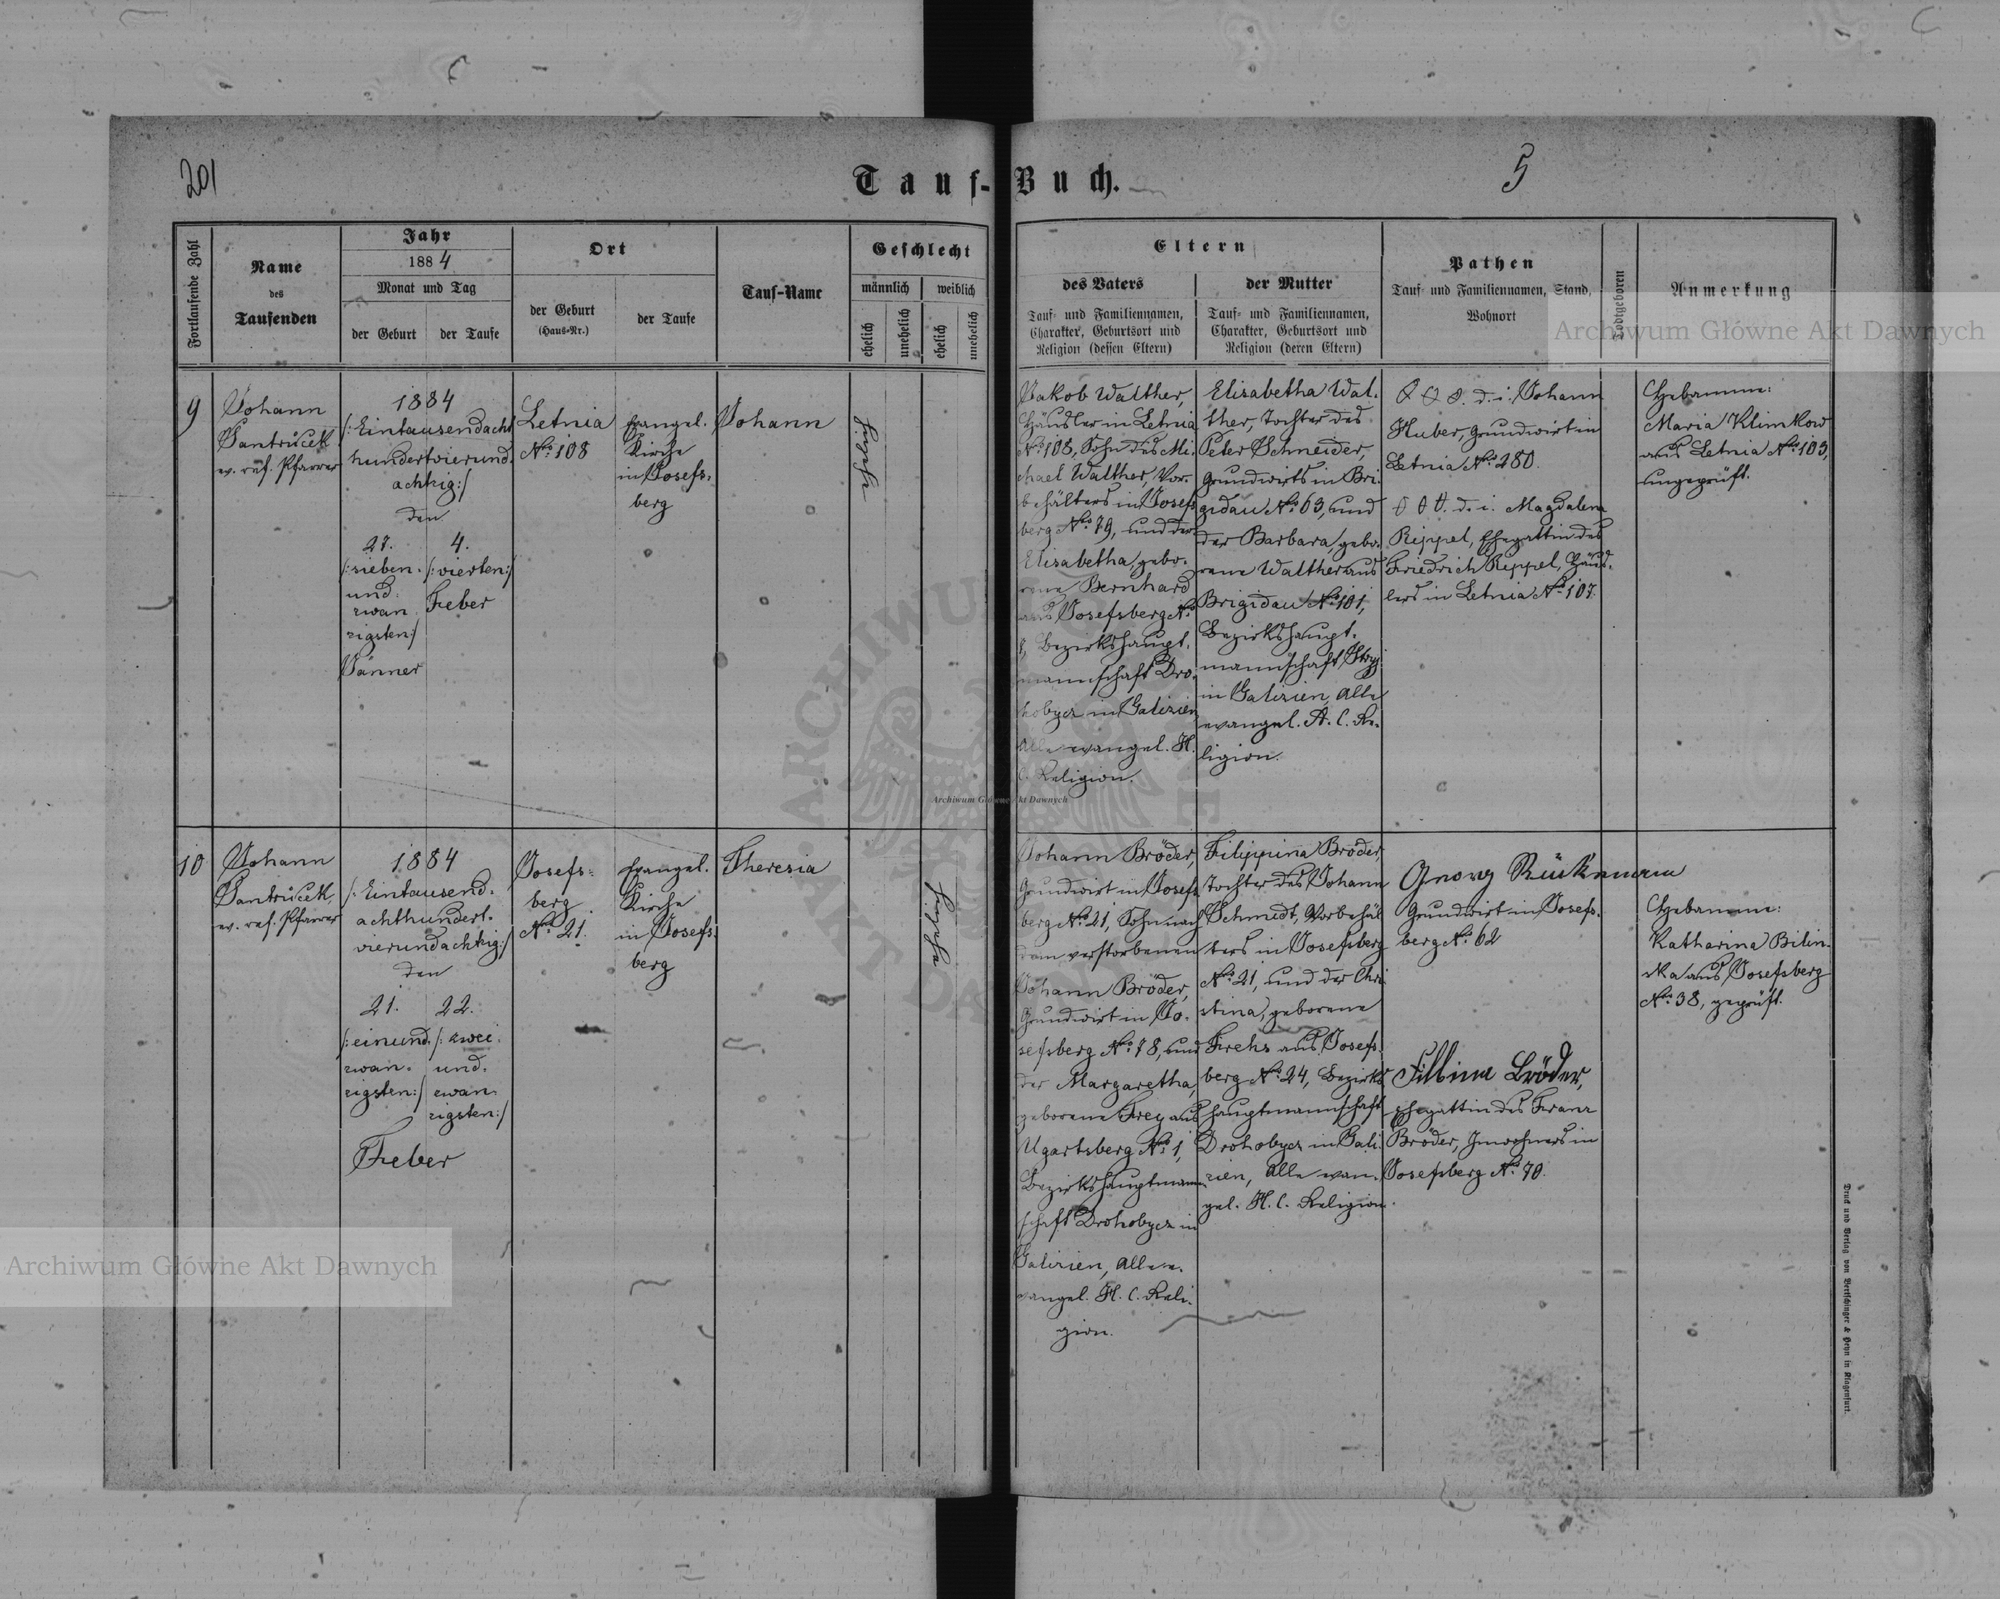 201
5
Tauf-Buch.
Fortlaufende Zahl
Name
des
Taufenden
Jahr
1884
Monat und Tag
der Geburt
der Taufe
Ort
der Geburt
(Haus-Nr.)
der Taufe
Tauf-Name
Geschlecht
männlich
weiblich
ehelich
unehelich
ehelich
unehelich
Eltern
des Vaters
Tauf- und Familiennamen,
Charakter, Geburtsort und
Religion (dessen Eltern)
der Mutter
Tauf- und Familiennamen,
Charakter, Geburtsort und
Religion (deren Eltern)
Pathen
Tauf- und Familiennamen, Stand,
Wohnort
Todtgeboren
Anmerkung
9
Johann
Jantrucek
ev. ref. Pfarrer
1884
/:Eintausendacht
hundertvierund.
achtzig:/
den
27.
/:sieben.
und.
zwan
zigsten:/
Jänner
4.
/:vierten:/
Feber
Letnia
No. 108
Evangel.
Kirche
in Josefs-
berg
Johann
Jakob Walther,
Häusler in Letnia
No. 108, Sohn des Mi.
chael Walther, Vor.
behälters in Josefs
berg No. 79, und der
Elisabetha, gebo.
rene Bernhard
aus Josefsberg No.
Bezirkshaupt.
mannschaft Dro.
hobycz in Galizien
Alle evangel. H.
C. Religion.
Elisabetha Wal.
ther, Tochter des
Peter Schneider,
Grundwirts in Bri.
gidau No. 63, und
der Barbara, gebo.
rene Walther aus
Brigidau No. 101,
Bezirkshaupt.
mannschaft Stryj
in Galizien, Alle
evangel. A. C. Re.
ligion.
d. i. Johann
Huber, Grundwirt in
Letnia No. 280.
d. i. Magdalena
Reppel, Ehegattin des
Friedrich Reppel, Häus.
lers in Letnia No. 107.
Hebamme:
Maria Klimkow
aus Letnia No. 103,
ungeprüft.
10
Johann
Jantrucek,
ev. ref. Pfarrer
1884
/:Eintausend.
achthundert.
vierundachtzig:/
den
21.
/:einund.
zwan.
zigsten:/
22.
/:zwei.
und.
zwan.
zigsten:/
Feber
Josefs-
berg
No. 21.
Evangel.
Kirche
in Josefs.
berg
Theresia
Johann Bröder,
Grundwirt in Josefs
berg No. 21, Sohn nach
dem verstorbenen
Johann Bröder,
Grundwirt in Jo.
sefsberg No. 78, und
der Margaretha,
geborene Frey aus
Ugartsberg No. 1,
Bezirkshauptmann
schaft Drohobycz in
Galizien, Alle e.
vangel. H. C. Reli.
gion.
Filippina Bröder,
Tochter des Johann
Schmidt, Vorbehäl
ters in Josefsberg
No. 21, und der Chri
stina, geborene
aus Josefs.
berg No. 24, Bezirks
hauptmannschaft
Drohobycz in Gali.
zien, Alle evan.
gel. H. C. Religion.
Georg
Grundwirt in Josefs.
berg No. 62
Filbina Bröder,
Ehegattin des Franz
Bröder, Inwohners in
Josefsberg No. 70.
Hebamme:
Katharina Bilin
ska aus Josefsberg
No. 38, geprüft.
Druck und Verlag von Bertschinger & Heyn in Klagenfurt.
Archiwum Główne Akt Dawnych
Archiwum Główne Akt Dawnych
Archiwum Główne Akt Dawnych